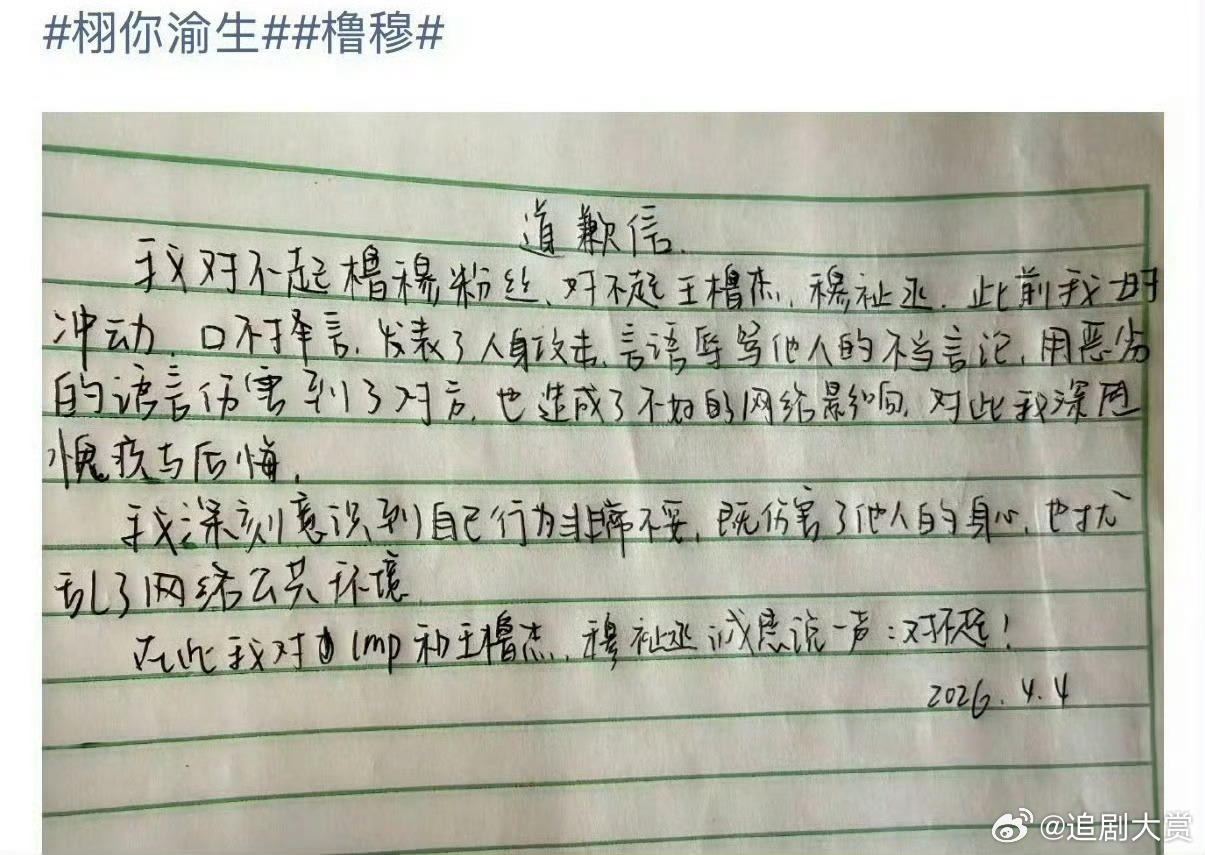 #栩你渝生##橹穆#
道歉信.
我对不起橹穆粉丝、对不起王橹杰、穆祉丞. 此前我一时
冲动, 口不择言, 发表了人身攻击、言语辱骂他人的不当言论, 用恶劣
的语言伤害到了对方, 也造成了不好的网络影响, 对此我深思
愧疚与后悔.
我深刻意识到自己行为非常不妥, 既伤害了他人的身心, 也扰
乱了网络公共环境
在此我对 lmp 和王橹杰、穆祉丞诚恳说一声:对不起!
2026.4.4
@追剧大赏